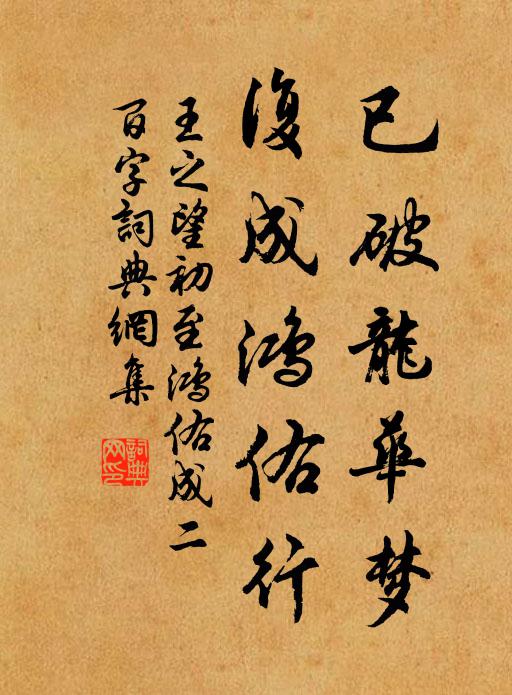 已破龍華梦
復成鴻佑行
王之望初至鴻佑成二
百字詞典網集
詞典网印